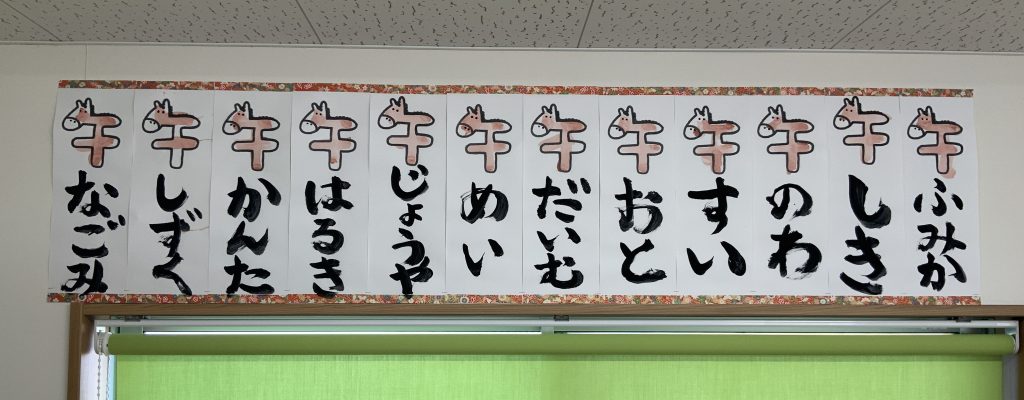 午 ふみか
午 しき
午 のわ
午 すい
午 おと
午 だいむ
午 めい
午 じょうや
午 はるき
午 かんた
午 しずく
午 なごみ